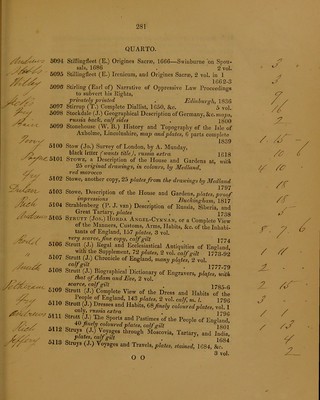 281
QUARTO.
5094 Stillingfleet (E.) Origines Sacræ, 1666—Swinburne on Spousals, 1686 2 vol.
5095 Stillingfleet (E.) Irenicum, and Origines Sacræ, 2 vol. in 1
1662-3
5096 Stirling (Earl of) Narrative of Oppressive Law Proceedings
to subvert his Rights,
privately printed Edinburgh, 1836
5097 Stirrup (T.) Complete Diallist, 1659, &c. 5 vol.
5098 Stockdale (J.) Geographical Description of Germany, &c. maps,
russia back, calf sides 1800
5099 Stonehouse (W. B.) History and Topography of the Isle of
Axholme, Lincolnshire, map and plates, 5 parts complete
1839
5100 Stow (Jo.) Survey of London, by A. Munday,
black letter (wants title), russia extra 1618
5101 Stowe, a Description of the House and Gardens at, with
25 original drawings, in colours, by Medland
red morocco
5102 Stowe, another copy, 25 plates from the drawings by Medland
1797
5103 Stowe, Description of the House and Gardens, plates, proof
impressions Buckingham, 1817
5104 Strahlenberg (P. J. van) Description of Russia, Siberia, and
Great Tartary, plates 1738
5105 Strutt (Jos.) Horda Angel-Cynnan, or a Complete View
of the Manners, Customs, Arms, Habits, &c. of the Inhabitants of England, 157 plates, 3 vol.
very scarce, fine copy, calf gilt 1774
5106 Strutt (J.) Regal and Ecclesiastical Antiquities of England,
with the Supplement, 72 plates, 2 vol. calf gilt 1773-92
5107 Strutt (J.) Chronicle of England, many plates, 2 vol.
calf gilt 1777-79
5108 Strutt (J.) Biographical Dictionary of Engravers, plates, with
that of Adam and Eve, 2 vol.
scarce, calf gilt 1785-6
5109 Strutt (J.) Complete View of the Dress and Habits of the
People of England, 143 plates, 2 vol. calf, m. l. 1796
5110 Strutt (J.) Dresses and Habits, 68 finely coloured plates, vol. 1
only, russia extra 1796
5111 Strutt (J.) The Sports and Pastimes of the People of England,
40 finely coloured plates, calf gilt 1801
5112 Struys (J.) Voyages through Moscovia, Tartary, and India,
plates, calf gilt 1684
5113 Struys (J.) Voyages and Travels, plates, stained, 1684, &c.
3 vol.
O O